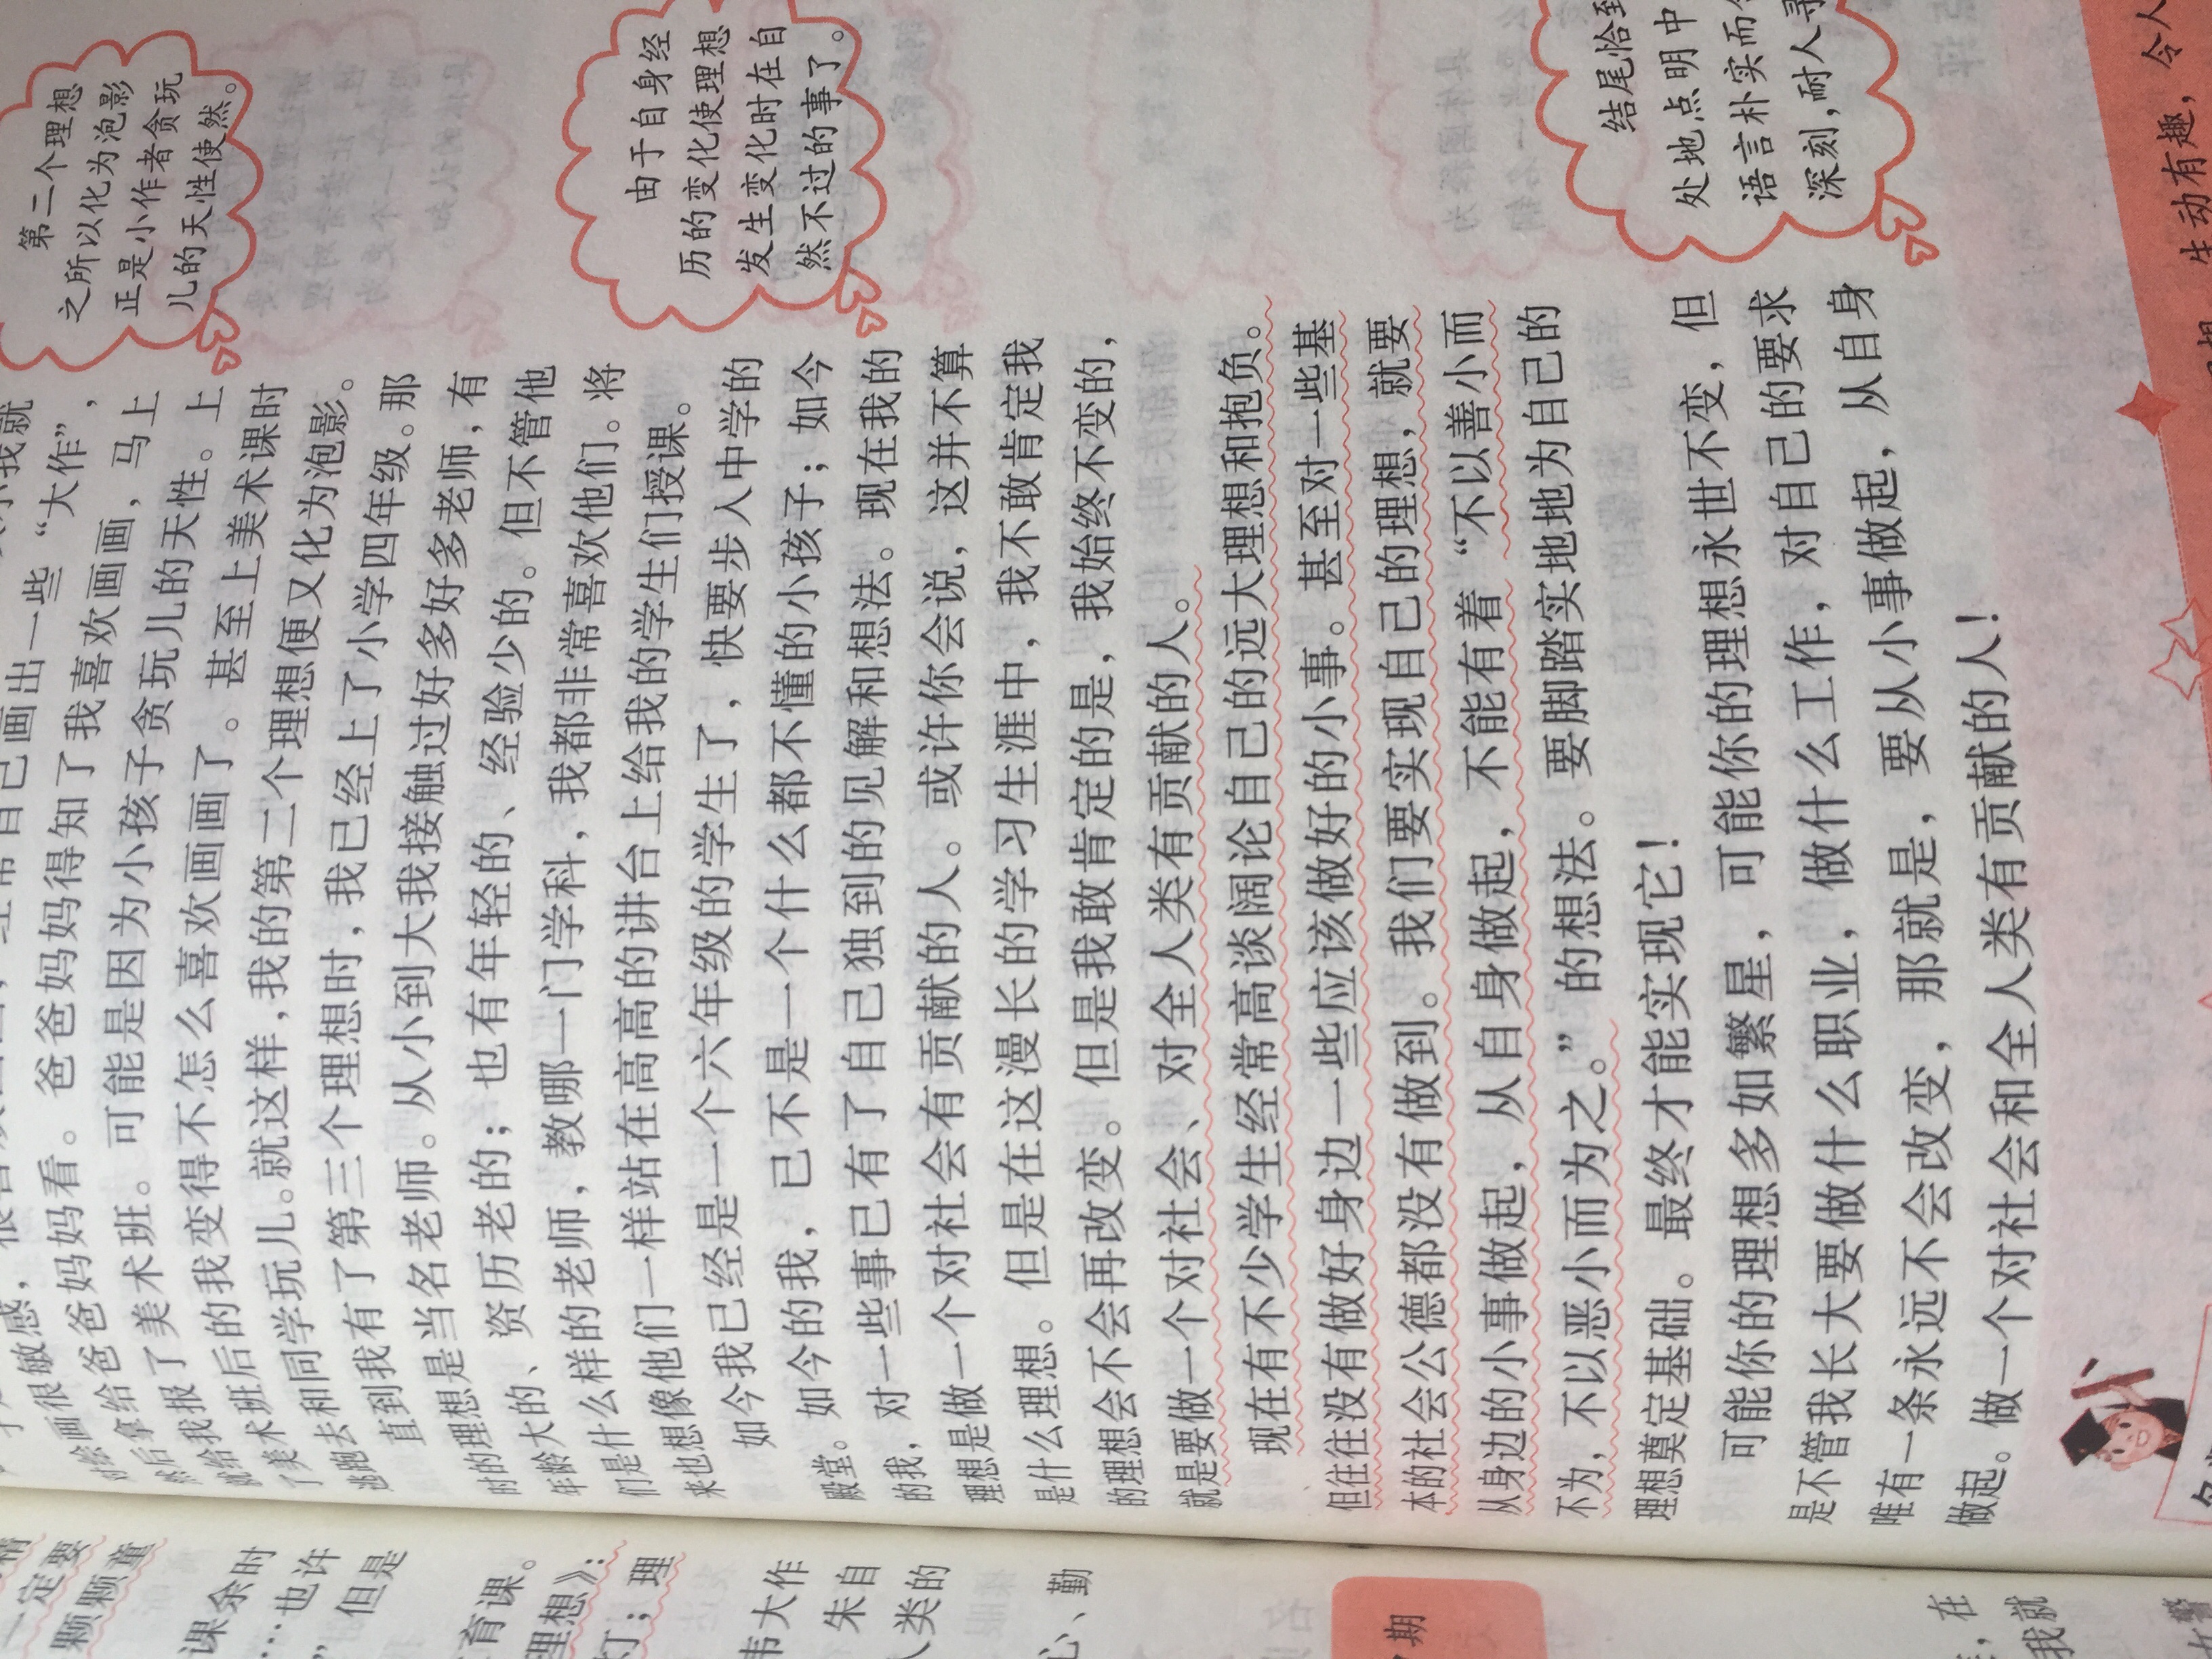 对绘画很敏感，
经常自己画出一些“大作”，
然后拿给爸爸妈妈看。爸爸妈妈得知了我喜欢画画，马上
就给我报了美术班。可能是因为小孩子贪玩儿的天性。上
了美术班后的我变得不怎么喜欢画画了。甚至上美术课时
逃跑去和同学玩儿。就这样，我的第二个理想便又化为泡影。
直到我有了第三个理想时，我已经上了小学四年级。那
时的理想是当名老师。从小到大我接触过好多好多老师，有
年龄大的、资历老的；也有年轻的、经验少的。但不管他
们是什么样的老师，教哪一门学科，我都非常喜欢他们。将
来也想像他们一样站在高高的讲台上给我的学生们授课。
如今我已经是一个六年级的学生了，快要步入中学的
殿堂。如今的我，已不是一个什么都不懂的小孩子；如今
的我，对一些事已有了自己独到的见解和想法。现在我的
理想是做一个对社会有贡献的人。或许你会说，这并不算
是什么理想。但是在这漫长的学习生涯中，我不敢肯定我
的理想会不会再改变。但是我敢肯定的是，我始终不变的，
就是要做一个对社会、对全人类有贡献的人。
现在有不少学生经常高谈阔论自己的远大理想和抱负。
但往往没有做好身边一些应该做好的小事。甚至对一些基
本的社会公德都没有做到。我们要实现自己的理想，就要
从身边的小事做起，从自身做起，不能有着“不以善小而
不为，不以恶小而为之。”的想法。要脚踏实地地为自己的
理想奠定基础。最终才能实现它！
可能你的理想多如繁星，可能你的理想永世不变，但
是不管我长大要做什么职业，做什么工作，对自己的要求
唯有一条永远不会改变，那就是，要从小事做起，从自身
做起。做一个对社会和全人类有贡献的人！
第二个理想
之所以化为泡影
正是小作者贪玩
儿的天性使然。
由于自身经
历的变化使理想
发生变化时在自
然不过的事了。
结尾恰到
处地点明中
语言朴实而
深刻，耐人寻
生动有趣，令人
一定要
颗颗童
课余时
…也许
但是
育课。
理想》：
灯；理
伟大作
朱自
人类的
心、勤
期
，在
我就